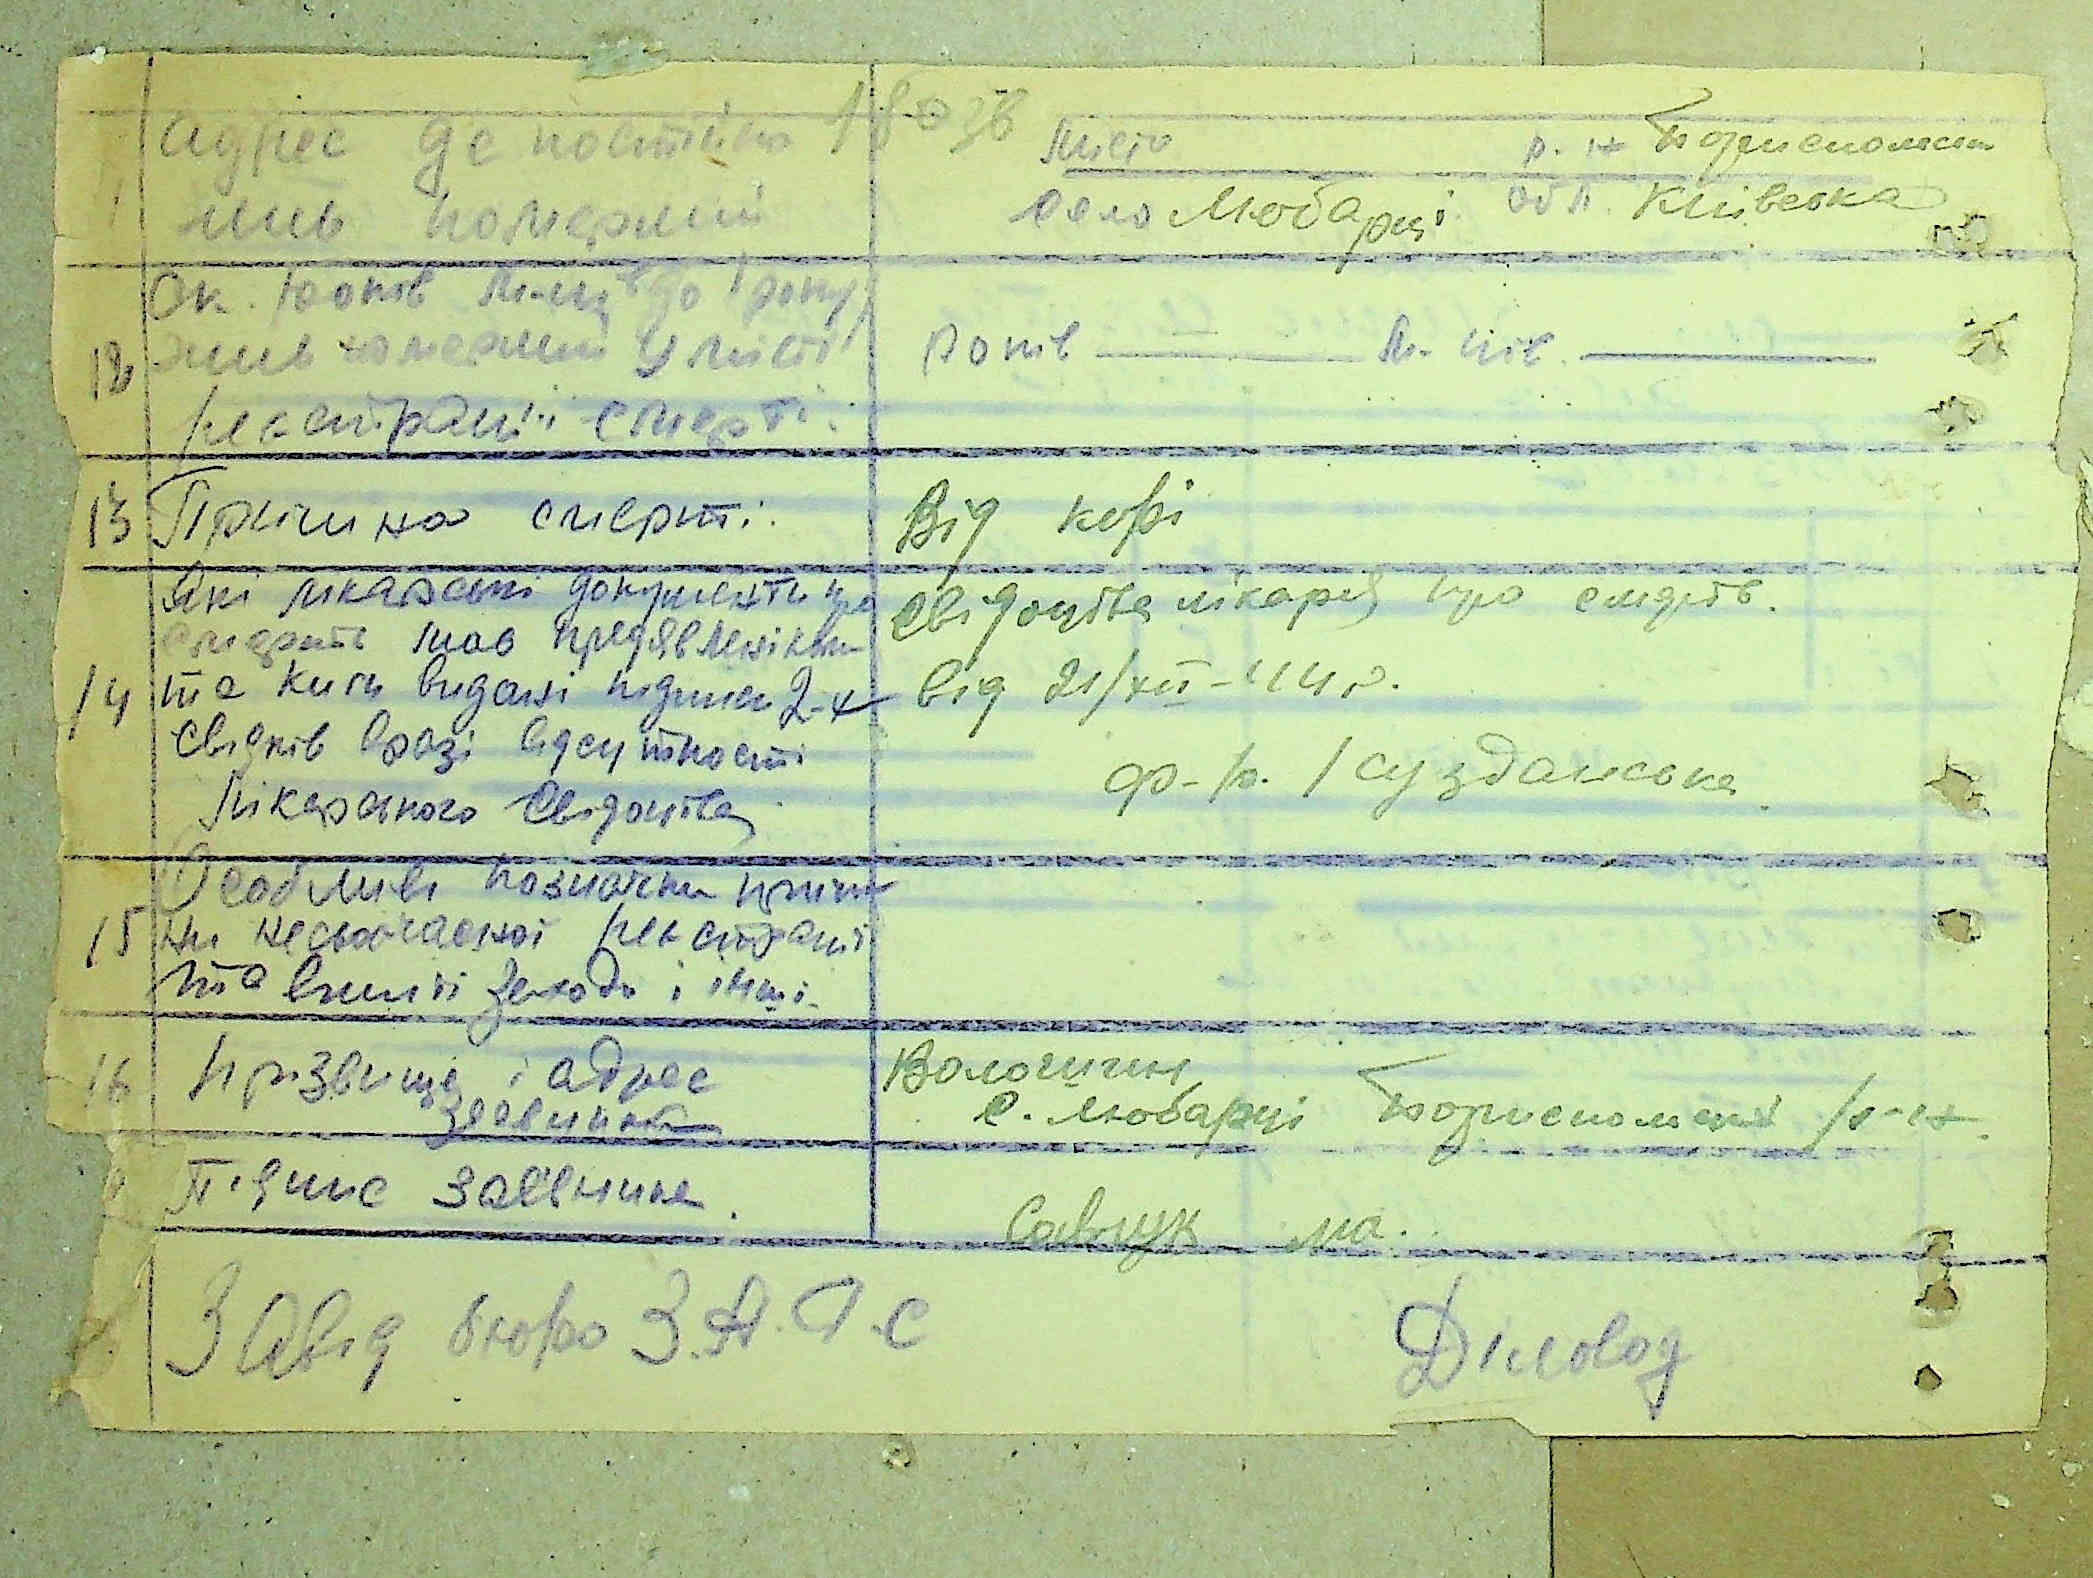 адрес де постійно
жив померлий
Місто р-н Бориспольськ
село Любарці обл. Київська
Ск. років м-ців до 1 року
12 жив померлий у місті
реєстрації смерті.
років м-ців
13 Причина смерті. Від корі
Які лікарські документи про
смерть
14 та ким видані підписи 2-х
свідків в разі відсутності
лікарського свідоцтва
Свідоцтва лікаря про смерть.
від 21/XII-44 р.
Особливі позначки причи
15 ни несвоєчасної реєстрації
та вжиті заходи і інші.
16 призвище і адрес
заявника
с. Любарці Бориспольськ р-н.
Підпис заявника.
Савчук
Завід бюро З.А.Г.С Діловод